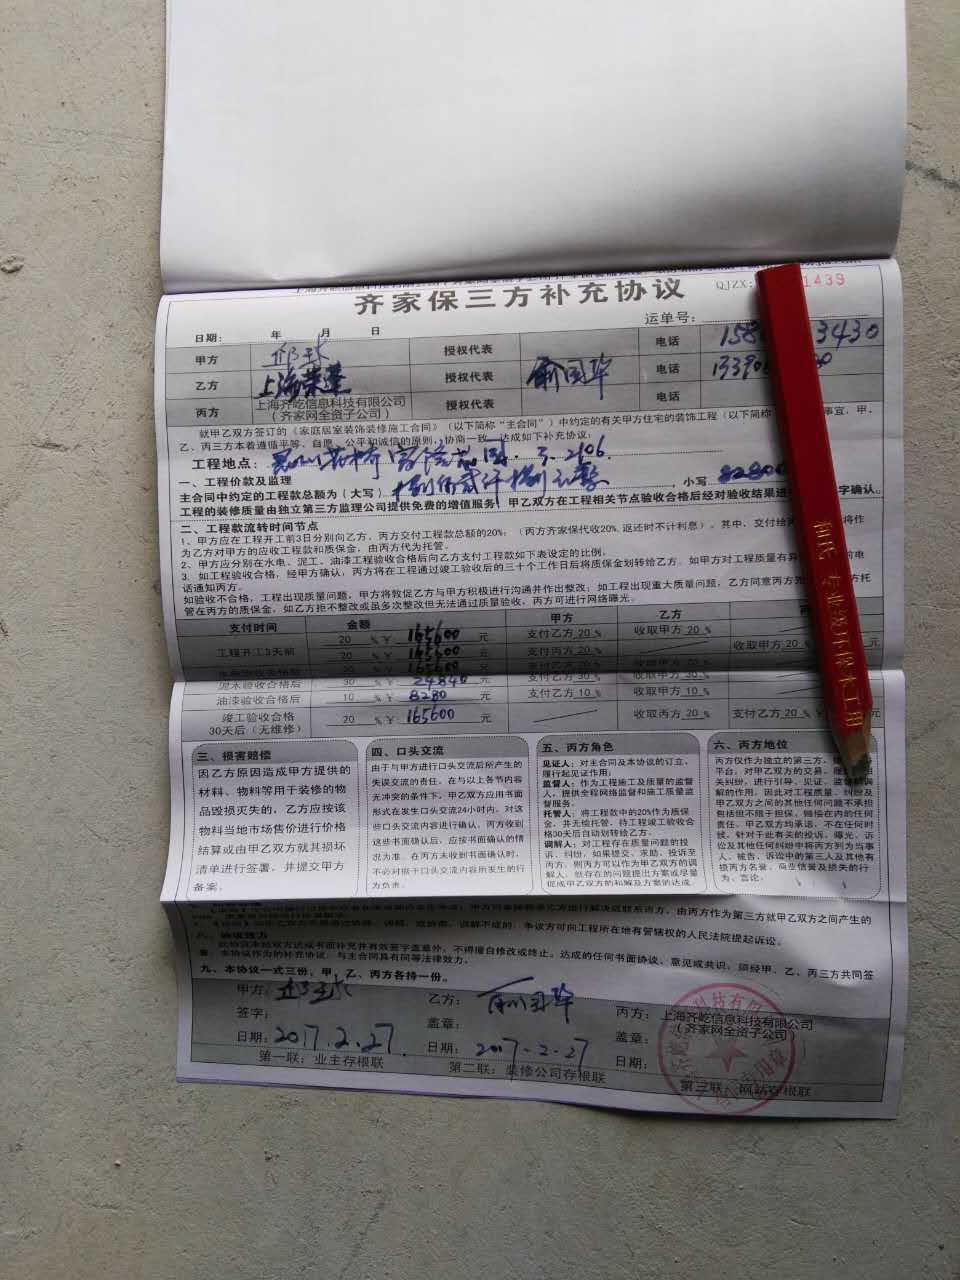 齐家保三方补充协议
QJZX: 1439
日期: 年 月 日
运单号:
甲方 授权代表 电话 158 3430
乙方 上海荣莲 授权代表 俞国华 电话 13390 00
丙方 上海齐屹信息科技有限公司 授权代表 电话
(齐家网全资子公司)
就甲乙双方签订的《家庭居室装饰装修施工合同》(以下简称“主合同”)中约定的有关甲方住宅的装饰工程(以下简称 事宜, 甲、
乙、丙三方本着遵循平等、自愿、公平和诚信的原则, 协商一致, 达成如下补充协议:
工程地点: 3. 2106.
一、工程价款及监理
主合同中约定的工程款总额为(大写) 捌万贰仟捌佰元整, 小写 82800
工程的装修质量由独立第三方监理公司提供免费的增值服务, 甲乙双方在工程相关节点验收合格后经对验收结果进 字确认。
二、工程款流转时间节点
1、甲方应在工程开工前3日分别向乙方、丙方交付工程款总额的20%; (丙方齐家保代收20%, 返还时不计利息)。其中, 交付给 将作
为乙方对甲方的应收工程款和质保金, 由丙方代为托管。
2、甲方应分别在水电、泥工、油漆工程验收合格后向乙方支付工程款如下表设定的比例。
3、如工程验收合格, 经甲方确认, 丙方将在工程通过竣工验收后的三十个工作日后将质保金划转给乙方。如甲方对工程质量有异 前电
话通知丙方。
如验收不合格, 工程出现质量问题, 甲方将敦促乙方与甲方积极进行沟通并作出整改; 如工程出现重大质量问题, 乙方同意丙方 方托
管在丙方的质保金, 如乙方拒不整改或虽多次整改但无法通过质量验收, 丙方可进行网络曝光。
支付时间 金额 甲方 乙方
工程开工3天前 20 %¥ 165600 元 支付乙方 20 % 收取甲方 20 %
20 %¥ 165600 元 支付丙方 20 % 收取甲方 20 %
20 %¥ 165600 元 支付乙方 20 % 收取甲方 20 %
泥木验收合格后 30 %¥ 24840 元 支付乙方 30 % 收取甲方 30 %
油漆验收合格后 10 %¥ 8280 元 支付乙方 10 % 收取甲方 10 %
竣工验收合格 20 %¥ 165600 元 收取丙方 20 % 支付乙方 20 %
30天后(无维修)
三、损害赔偿
因乙方原因造成甲方提供的
材料、物料等用于装修的物
品毁损灭失的, 乙方应按该
物料当地市场售价进行价格
结算或由甲乙双方就其损坏
清单进行签署, 并提交甲方
备案。
四、口头交流
由于与甲方进行口头交流后所产生的
失误交流的责任, 在与以上各节内容
无冲突的条件下, 甲乙双方应用书面
形式在发生口头交流24小时内, 对这
些口头交流内容进行确认, 丙方收到
这些书面确认后, 应按书面确认的情
况为准。在丙方未收到书面确认时,
不必对基于口头交流内容所发生的行
为负责。
五、丙方角色
见证人: 对主合同及本协议的订立、
履行起见证作用;
监督人: 作为工程施工及质量的监督
人, 提供全程网络监督和施工质量监
督服务。
托管人: 将工程款中的20%作为质保
金, 并无偿托管, 待工程竣工验收合
格30天后自动划转给乙方。
调解人: 对工程存在质量问题的投
诉、纠纷, 如果提交、求助、投诉至
丙方, 则丙方可以作为甲乙双方的调
解人, 就存在的问题提出方案或尽量
促成甲乙双方的和解及方案的达成。
六、丙方地位
丙方仅作为独立的第三方,
平台, 对甲乙双方的交易、 相
关纠纷, 进行引导、见证、监督和调
解的作用。因此对工程质量、纠纷及
甲乙双方之间的其他任何问题不承担
包括但不限于担保、赔偿在内的任何
责任。甲乙双方均承诺, 不在任何时
候, 针对于此有关的投诉、曝光、诉
讼及其他任何纠纷中将丙方列为当事
人、被告、诉讼中的第三人及其他有
损丙方名誉、商业信誉及损失的行
为、言论。
由丙方作为第三方就甲乙双方之间产生的
争议方可向工程所在地有管辖权的人民法院提起诉讼。
八、协议效力
不得擅自修改或终止。达成的任何书面协议、意见或共识, 须经甲、乙、丙三方共同签
署, 本协议作为的补充协议, 与主合同具有同等法律效力。
九、本协议一式三份, 甲、乙、丙方各持一份。
甲方: 乙方: 俞国华 丙方: 上海齐屹信息科技有限公司
(齐家网全资子公司)
签字: 盖章: 盖章:
日期: 2017.2.27. 日期: 2017-2-27 日期:
第一联: 业主存根联 第二联: 装修公司存根联 第三联: 网站存根联